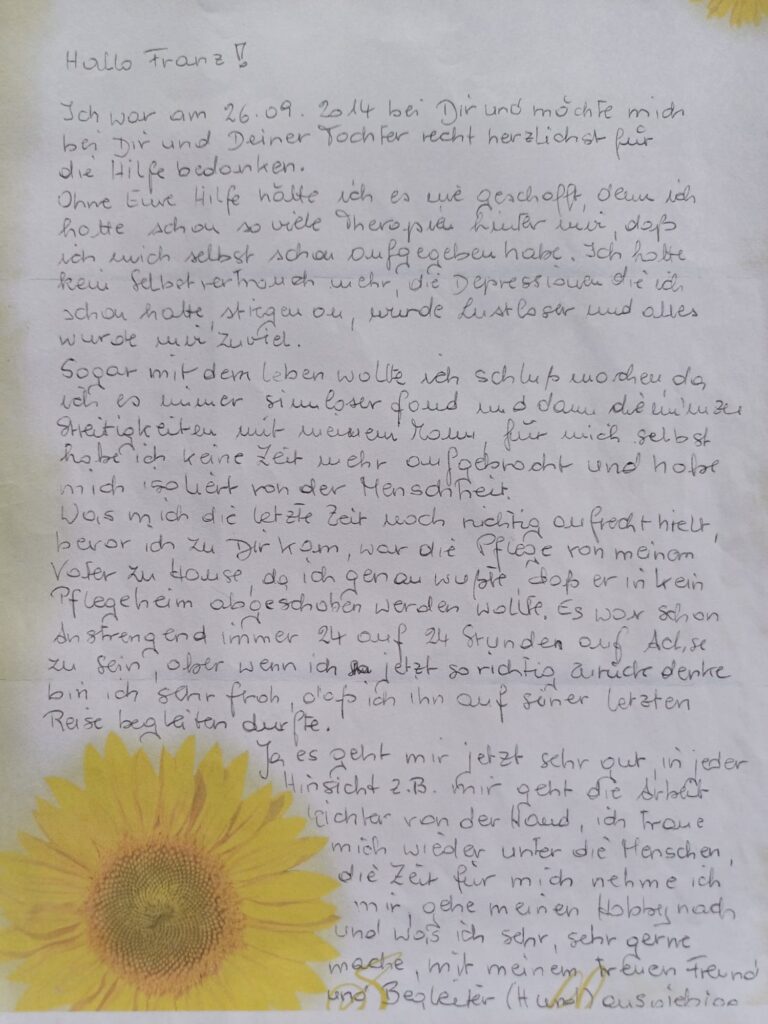 Hallo Franz!
Ich war am 26.09.2014 bei Dir und möchte mich
bei Dir und Deiner Tochter recht herzlichst für
die Hilfe bedanken.
Ohne Eure Hilfe hätte ich es nie geschafft, denn ich
hatte schon so viele Therapien hinter mir, daß
ich mich selbst schon aufgegeben habe. Ich hatte
kein Selbstvertrauen mehr, die Depressionen die ich
schon hatte, stiegen an, wurde Lustloser und alles
wurde mir zuviel.
Sogar mit dem Leben wollte ich schluß machen, da
ich es immer sinnloser fand und dann die
Streitigkeiten mit meinem Mann, für mich selbst
habe ich keine Zeit mehr aufgebracht und habe
mich isoliert von der Menschheit.
Was mich die letzte Zeit noch richtig aufrecht hielt,
bevor ich zu Dir kam, war die Pflege von meinem
Vater zu Hause, da ich genau wußte daß er in kein
Pflegeheim abgeschoben werden wollte. Es war schon
Anstrengend immer 24 auf 24 Stunden auf Achse
zu sein, aber wenn ich jetzt so richtig zurück denke
bin ich sehr froh, daß ich ihn auf seiner letzten
Reise begleiten durfte.
Ja es geht mir jetzt sehr gut, in jeder
Hinsicht z.B. mir geht die Arbeit
leichter von der Hand, ich traue
mich wieder unter die Menschen,
die Zeit für mich nehme ich
mir, gehe meinen Hobby nach
und was ich sehr, sehr gerne
mache, mit meinem treuen Freund
und Begleiter (Hund) ausgiebige